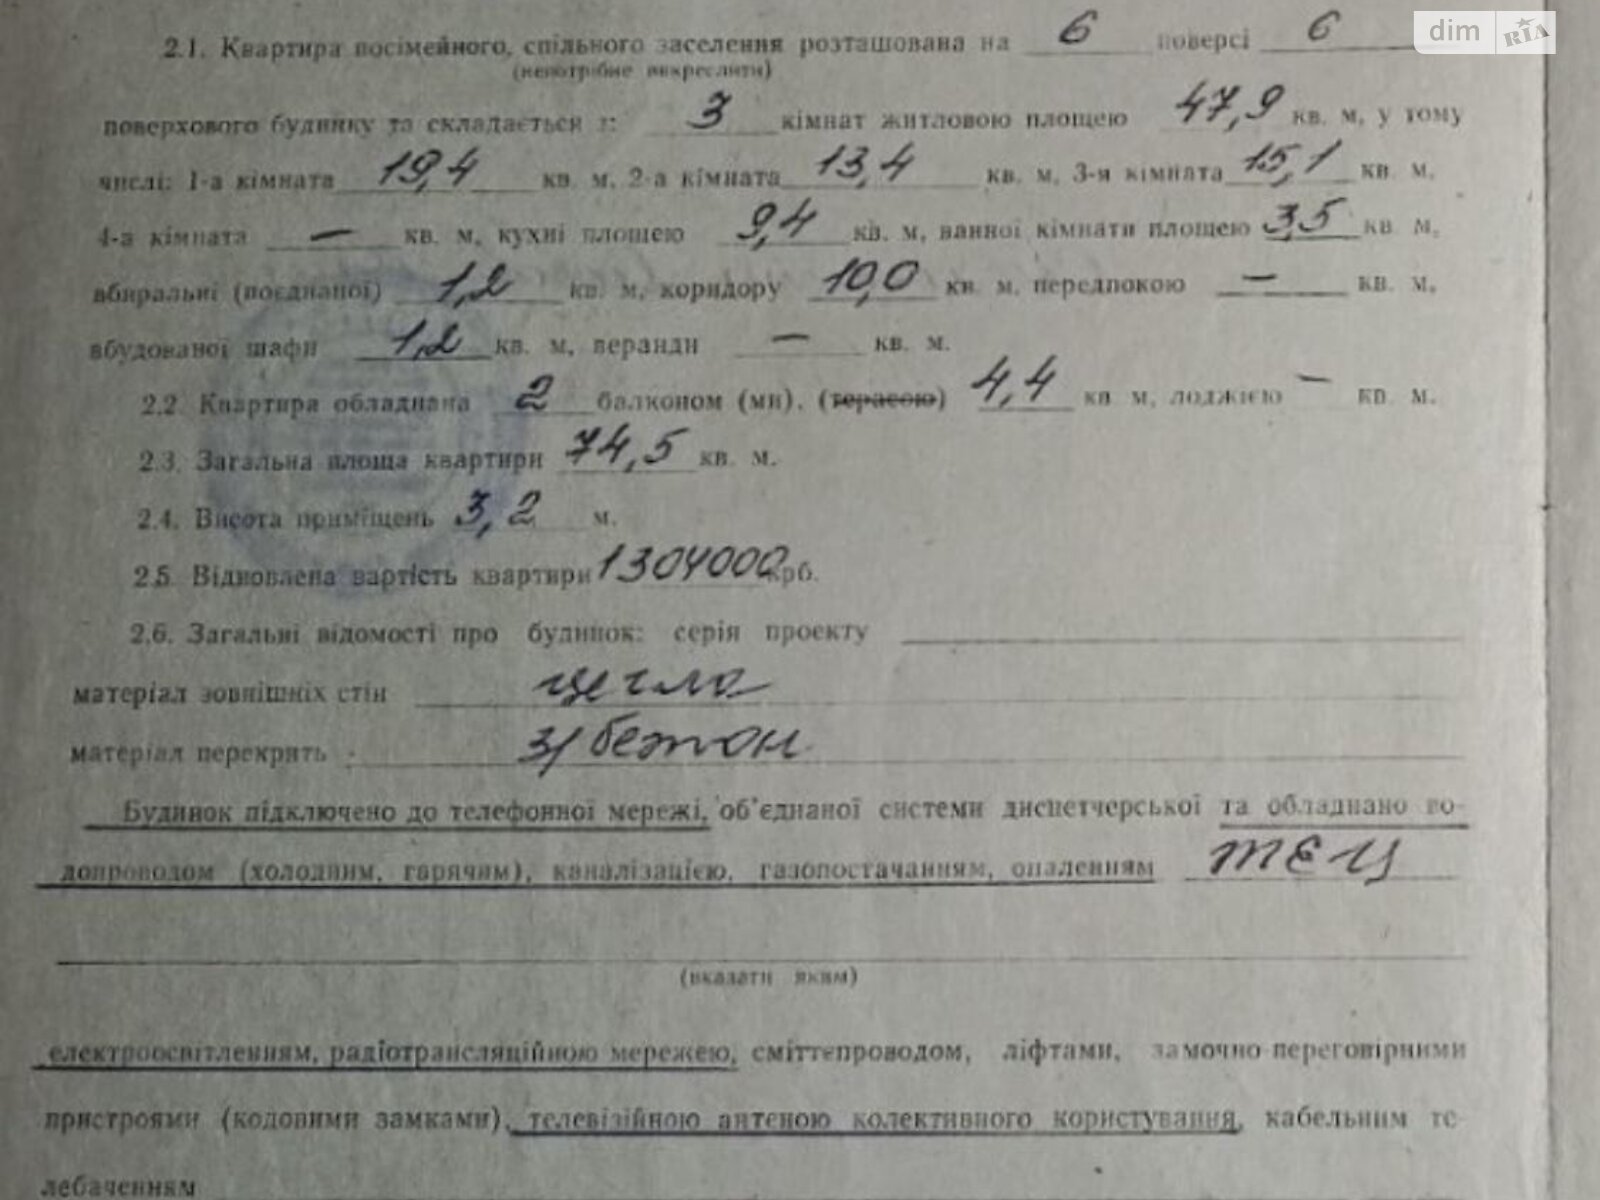 dim RIA
2.1. Квартира посімейного, спільного заселення розташована на 6 поверсі 6
(непотрібне викреслити)
поверхового будинку та складається з: 3 кімнат житловою площею 47,9 кв. м, у тому
числі: 1-а кімната 19,4 кв. м, 2-а кімната 13,4 кв. м, 3-я кімната 15,1 кв. м,
4-а кімната — кв. м, кухні площею 9,4 кв. м, ванної кімнати площею 3,5 кв. м,
вбиральні (поєднаної) 1,2 кв. м, коридору 10,0 кв. м, передпокою — кв. м,
вбудованої шафи 1,2 кв. м, веранди — кв. м.
2.2. Квартира обладнана 2 балконом (ми), (терасою) 4,4 кв м, лоджією — кв. м.
2.3. Загальна площа квартири 74,5 кв. м.
2.4. Висота приміщень 3,2 м.
2.5. Відновлена вартість квартири 1304000 крб.
2.6. Загальні відомості про будинок: серія проекту
матеріал зовнішніх стін цегла
матеріал перекрить з/бетон
Будинок підключено до телефонної мережі, об'єднаної системи диспетчерської та обладнано во-
допроводом (холодним, гарячим), каналізацією, газопостачанням, опаленням ТЕЦ
(вказати яким)
електроосвітленням, радіотрансляційною мережею, сміттєпроводом, ліфтами, замочно-переговірними
пристроями (кодовими замками), телевізійною антеною колективного користування, кабельним те-
лебаченням